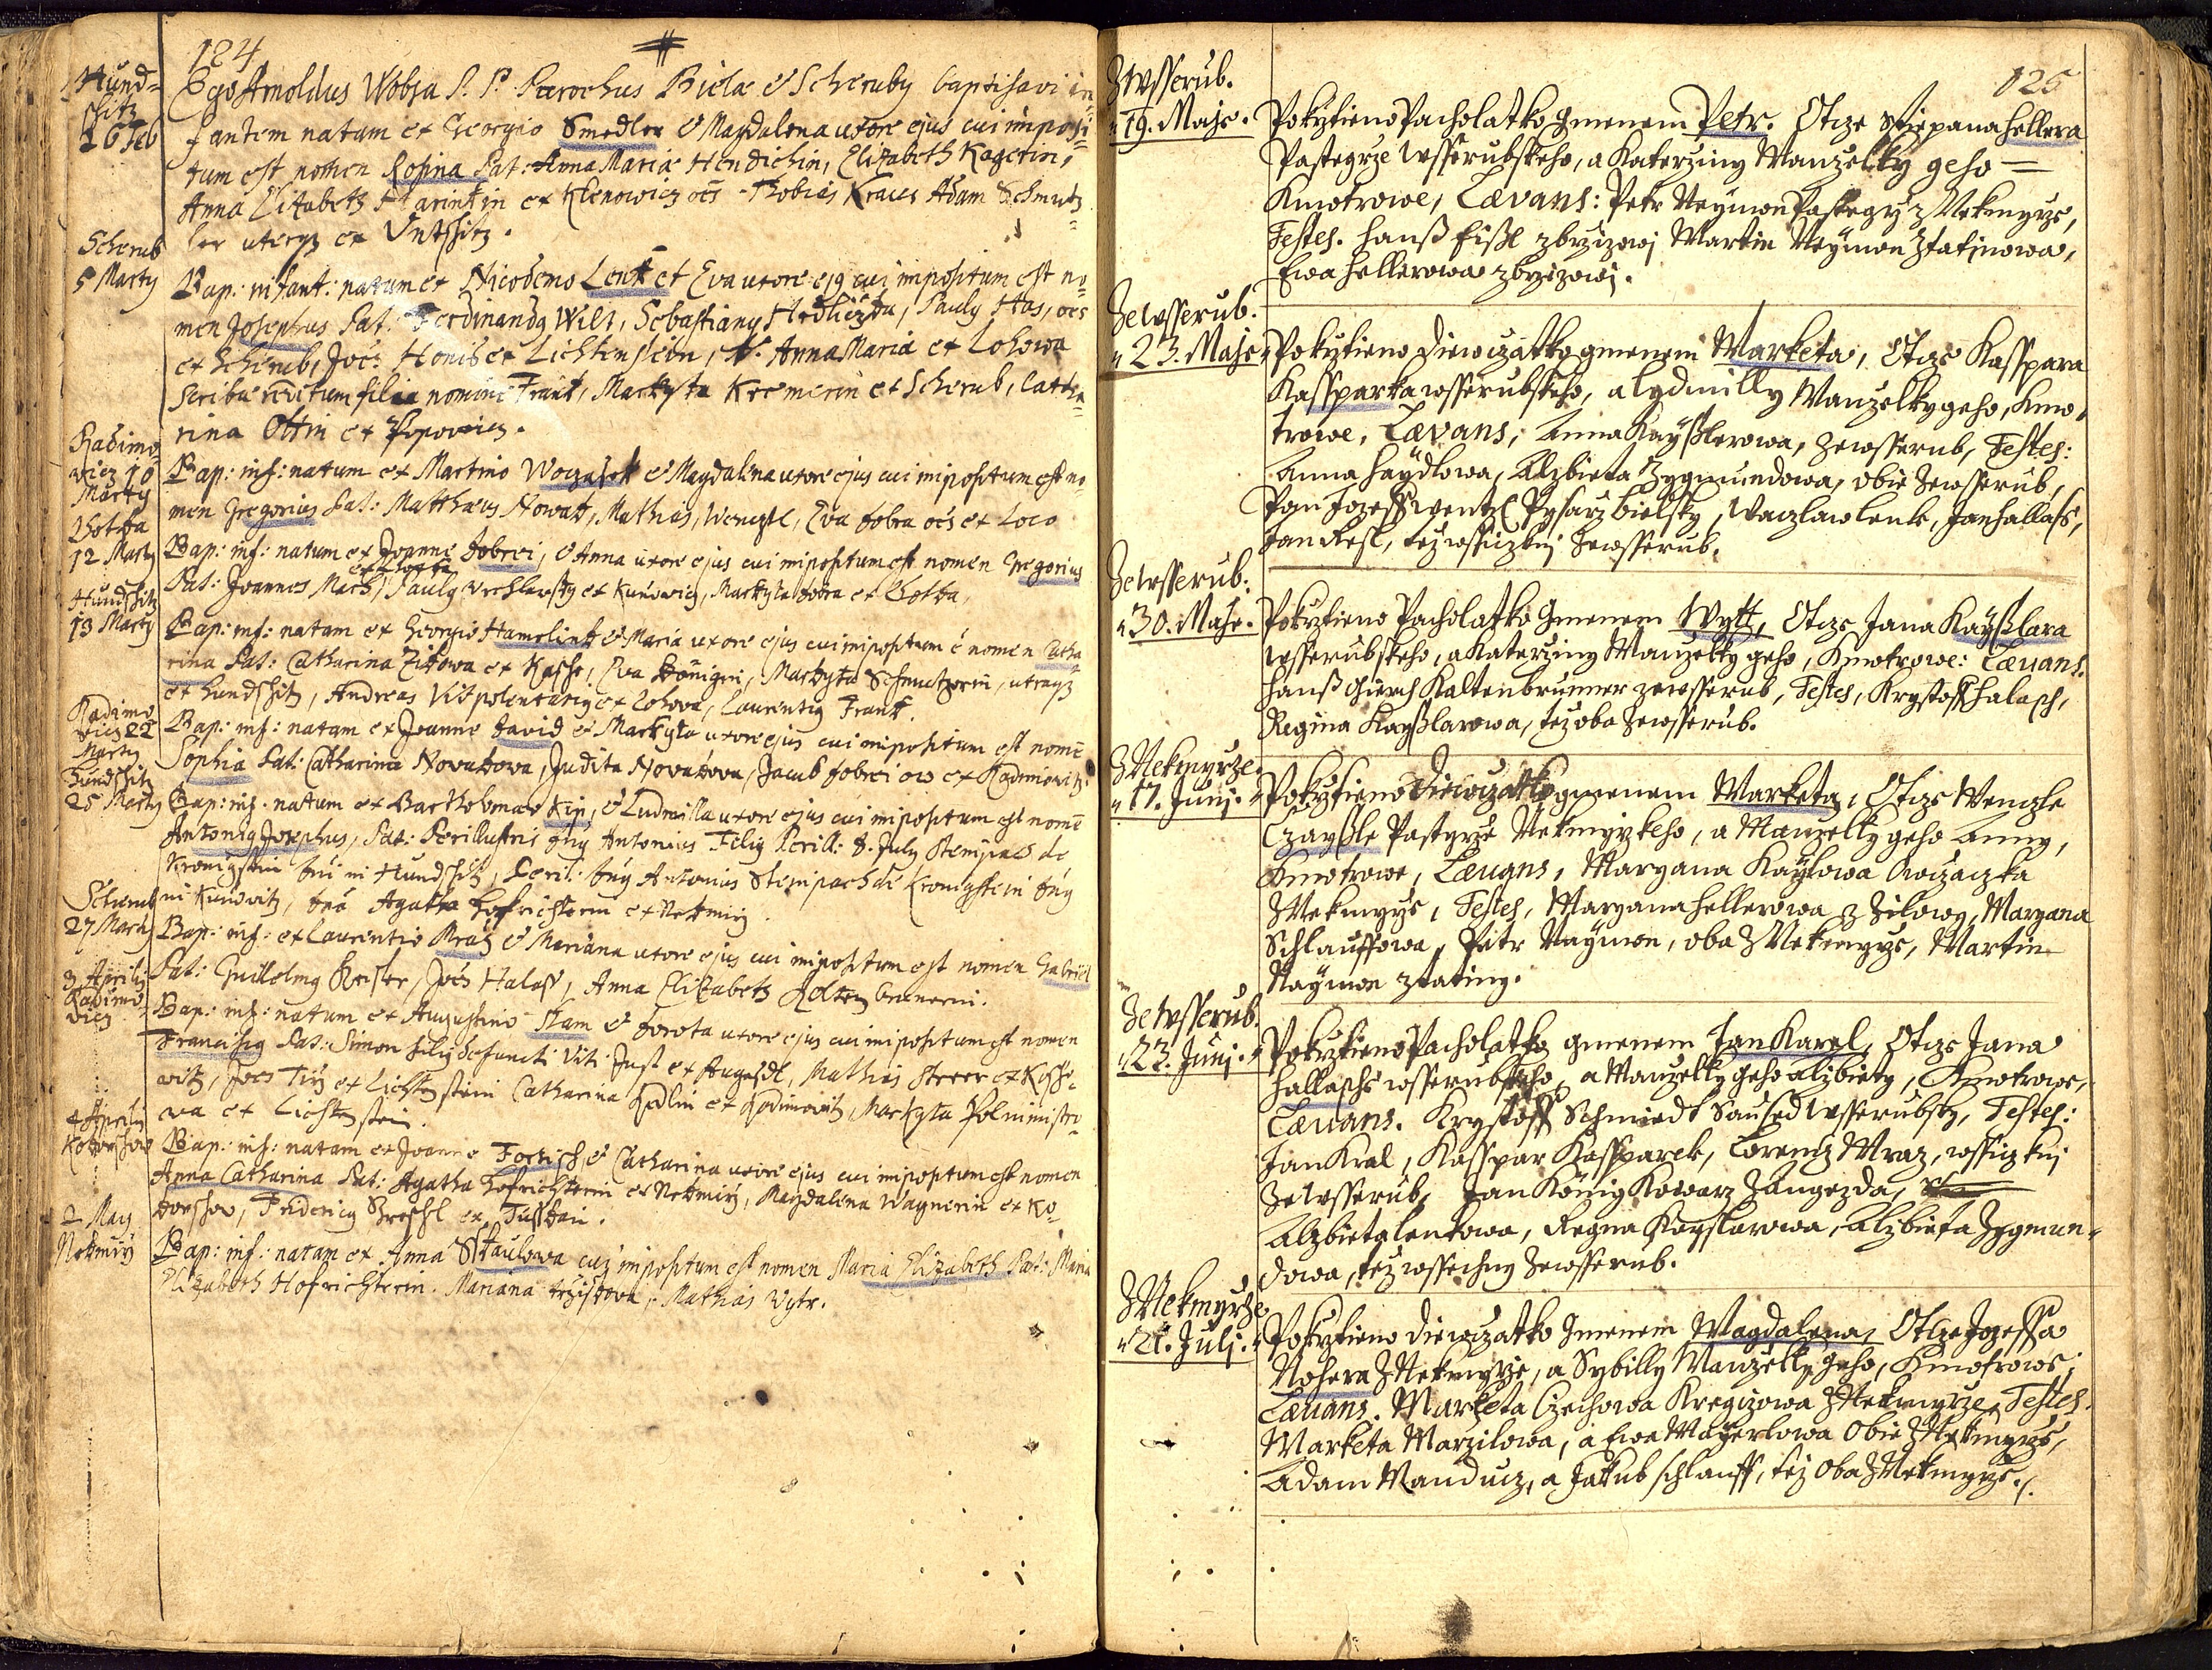 184
Hund=
schitz
26 Feb
Ego Arnoldus Wobsa P. P. Parochus Bielæ & Scheruby baptisavi in=
fantem natam ex Georgio Smedler & Magdalena uxore ejus cui imposi=
tum est nomen Rosina Pat: Anna Maria Hendichin, Elizabeth Kagerin,
Anna Elizabeth ex Klenowicz oēs Thobias Kraus Adam Schmutz
ler uterq ex
Scherub
5 Marty
Bap: infant: natum ex Nicodemo Lenk et Eva uxore ejq cui impositum est no=
men Josephus Pat. Ferdinandq Wilt, Sebastianq Hedliczka, Paulq Has, oēs
ex Scherub, Joēs Honis ex Lichtenstein, Anna Maria ex Lohowa
Scribæ filia nomine Frank, Markyta Kremerin ex Scherub, Cathe=
rina Ottin ex Popowicz.
Radimo
wicz 10
Marty
Bap: inf: natum ex Martino Woczasek & Magdalena uxore ejus cui impositum est no=
men Gregorius Pat: Matthæus Nowak, Mathias, Wenczl, Eva Dobra oēs ex Loco
Lhotka
12 Marty
Bap: inf: natum ex Joanne Dobrei, & Anna uxore ejus cui impositum est nomen Gregorius
Pat: Joannes Mach, Paulq ex Kunowicz, Markyta Dobra ex Lhotka,
Hundschitz
13 Marty
Bap: inf: natam ex Georgio Hamelink & Maria uxore ejus cui impositum ē nomen Catha
rina Pat: Catharina Zikowa ex Kosse, Eva Königin, Markyta Schmutzerin, utraqz
ex Hundschitz, Andreas ex Lohova, Laurentiq Frank.
Radimo
wicz 22
Marty
Bap: inf: natam ex Joanne David & Markyta uxore ejus cui impositum est nomē
Sophia Pat: Catharina Novakova, Judita Novakova, Jacub Dobrei ex Radimowitz.
Hundschitz
25 Marty
Bap: inf. natum ex Bartholomæo Kin, & Ludmilla uxore ejus cui impositum est nomē
Antoniq Josephus, Pat: Perillustris Antonius Filiq Perill: D. July Stenpach de
in Hundschitz, Peril: Antonius Stenpach de
in Kunowitz, Agatha Hofrichterin ex Nekmirz.
Scherub
27 Marty
Bap: inf: ex Laurentio Mraz & Mariana uxore ejus cui impositum est nomen Gabriel
Pat: Guillelmq Keiser, Joēs Halass, Anna Elizabeth
3 Aprilis
Radimo
wicz
Bap: inf: natum ex Augustino Stam & Dorota uxore ejus cui impositum est nomen
Francisq Pat: Simon filiq defuncti Viti Just ex Augezdl, Mathias ex Kosse=
witz, Joēs ex Lichtenstein Catharina ex Radimowitz, Markyta
va ex Lichtenstein.
4 Aprilis
Bap: inf: natam ex Joanne Fortisch & Catharina uxore ejus cui impositum est nomen
Anna Catharina Pat: Agatha Hofrichterin ex Nekmirz, Magdalena Wagnerin ex Ko=
Fridericq ex
2 May
Nekmirz
Bap: inf: natam ex Anna cui impositum est nomen Maria Elizabeth Pat: Maria
Elizabeth Hofrichterin. Mariana Mathias Vytr.
125
Z Wsserub.
19. Maje.
Pokrztieno Pacholatko Gmenem Petr. Otcze Sstiepana Hellera
Pastegrze Wsserubskeho, a Katerziny Manzelky geho =
Kmotrowe, Lævans: Petr Neymon Pastegrz z Nekmyrze,
Testes. Hanß Fißl z Brzizowi Martin Neymon
Ewa Hellerowa z Brzizowi.
Ze Wsserub.
23. Maje
Pokrztieno Diewczatko gmenem Marketa, Otcze Kasspara
Kassparka wsserubskeho, a Lydmilly Manzelky geho, Kmo,
trowe, Lævans, Anna Kayßlerowa, ze wsserub, Testes:
Anna Haydlowa, Alzbieta Zygmundowa, obie ze wsserub,
Pan Jozeff Wentzl Pysarz Bielsky, Waczlaw Lenk, Jan Hallass,
Jan Resl, tez wssiczkni ze wsserub.
Ze Wsserub:
30. Maje.
Pokrztieno Pacholatko Gmenem Wytt, Otcze Jana Kayßlara
Wsserubskeho, a Katerziny Manzelky geho, Kmotrowe: Lævans.
Hanß Kaltenbrunner ze wsserub, Testes, Krystoff Halasch,
Regina Kayßlarowa, tez oba ze wsserub.
Z Nekmyrze
17. Junj.
Pokrztieno Diewczatko gmenem Marketa, Otcze Wenczle
Czayßle Pastyrze Nekmyrzkeho, a Manzelky geho Anny,
Kmotrowe, Lævans, Maryana Kaylowa Owczaczka
z Nekmyrze, Testes, Maryana Hellerowa z Zilowy, Maryana
Schlauffowa, Petr Naymon, oba z Nekmyrze, Martin
Naymon z Tatiny.
Ze Wsserub.
23. Junj.
Pokrztieno Pacholatko gmenem Jan Karel, Otcze Jana
Hallasche wsserubskeho, a Manzelky geho Alzbiety, Kmotrowe,
Lævans. Krystoff Schmiedt Saused Wsserubsky, Testes:
Jan Kral, Kasspar Kassparek, Lorentz Mraz, wssiczkni
ze Wsserub, Jan König Kowarz z Augezda,
Alzbieta Lenkowa, Regina Kayßlarowa, Alzbieta Zygmun=
dowa, tez wssechny ze wsserub.
Z Nekmyrze
21. Julj.
Pokrztieno Diewczatko Gmenem Magdalena, Otcze Jozeffa
Nohera z Nekmyrze, a Sybilly Manzelky geho, Kmotrowe,
Lævans. Marketa Czechowa Kregczowa z Nekmyrze, Testes.
Marketa Marzilowa, a Ewa Mayerlowa Obie z Nekmyrze,
Adam Manducz, a Jakub Schlauff, tez Oba z Nekmyrze.